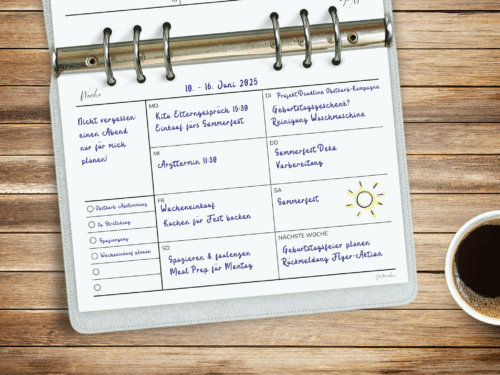 Woche
10. - 16. Juni 2025
Nicht vergessen:
einen Abend
nur für mich
planen!
MO
Kita Elterngespräch 15:30
Einkauf fürs Sommerfest
DI
Projekt-Deadline Obstkorb-Kampagne
Geburtstagsgeschenk?
Reinigung Waschmaschine
MI
Arzttermin 11:30
DO
Sommerfest Deko
Vorbereitung
Obstkorb Abstimmung
Stretching
Spaziergang
Wocheneinkauf planen
FR
Wocheneinkauf
Kuchen für Fest backen
SA
Sommerfest
SO
Spazieren & faulenzen
Meal Prep für Montag
NÄCHSTE WOCHE
Geburtstagsfeier planen
Rückmeldung Flyer-Aktion